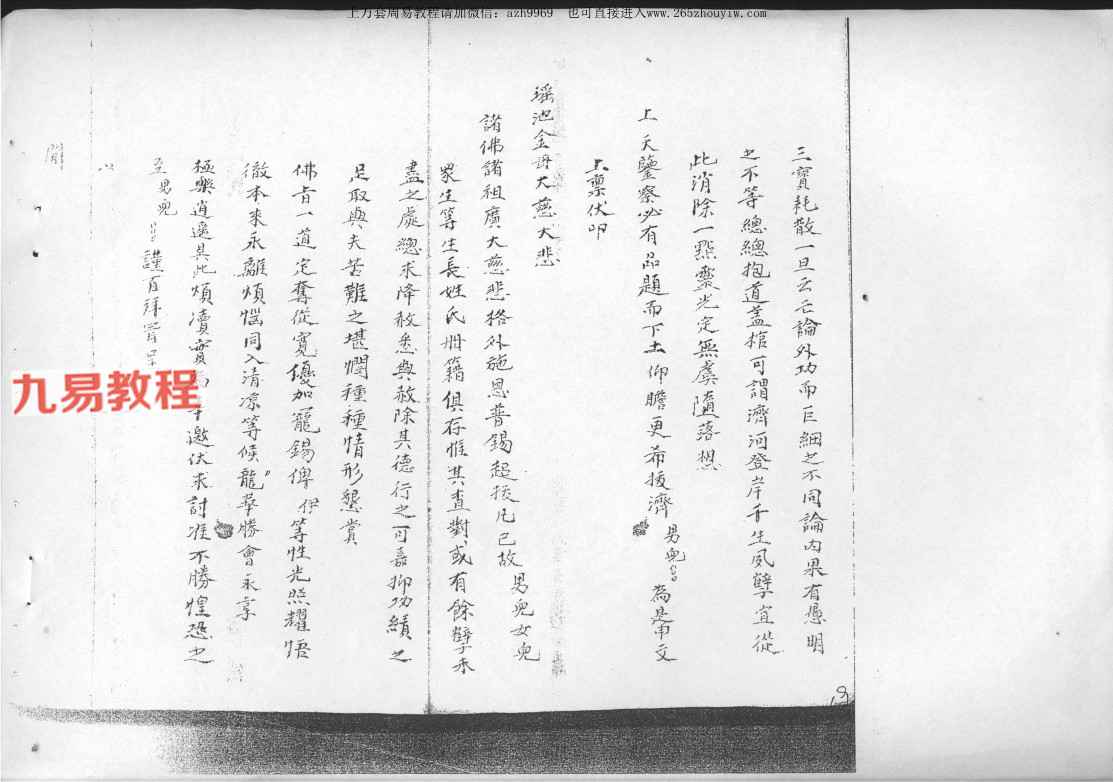 上万套周易教程请加微信:azh9969 也可直接进入www.265zhouyiw.com
三寶耗散一旦云亡論外功而巨細之不同論内果有愚明
之不等總總抱道蓋棺可謂濟河登岸千生夙孽宜從
此消除一點靈光定無虞墮落想
上天鑒察必有品題而下土仰瞻更希援濟男兒 為是申文
上稟伏叩
瑶池金母大慈大悲
諸佛諸祖廣大慈悲格外施恩普錫超拔凡已故男兒女兒
衆生等生長姓氏册籍俱存惟其查對或有餘孽未
盡之處總求降赦悉與赦除其德行之可嘉抑功績之
足取與夫苦難之堪憫種種情形懇賞
佛旨一道定奪從寬優加寵錫俾伊等性光照耀悟
徹本來永離煩惱同入清凉等候龍華勝會永享
極樂逍遥其此煩瀆實 邀伏求討准不勝惶恐之
至男兒 謹百拜
九易教程